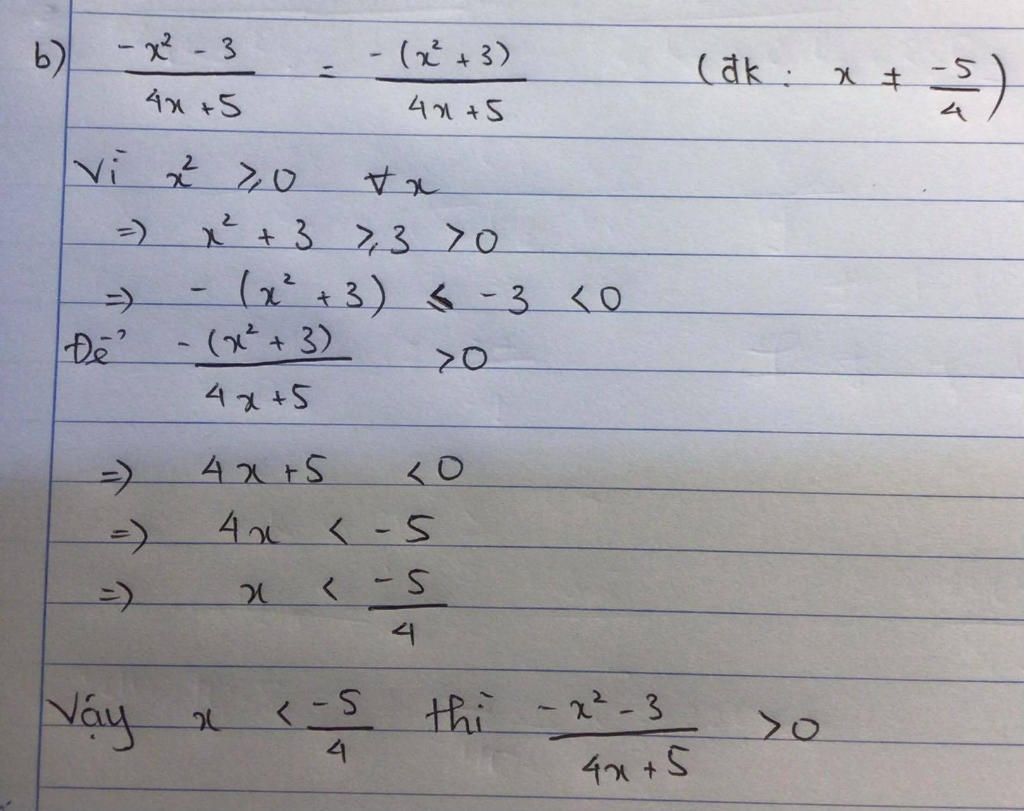 b) (-x² - 3)/(4x + 5) = (-(x² + 3))/(4x + 5) (đk : x ≠ -5/4)
Vì x² ≥ 0 ∀ x
=> x² + 3 ≥ 3 > 0
=> - (x² + 3) ≤ -3 < 0
Để (-(x² + 3))/(4x + 5) > 0
=> 4x + 5 < 0
=> 4x < -5
=> x < -5/4
Vậy x < -5/4 thì (-x² - 3)/(4x + 5) > 0